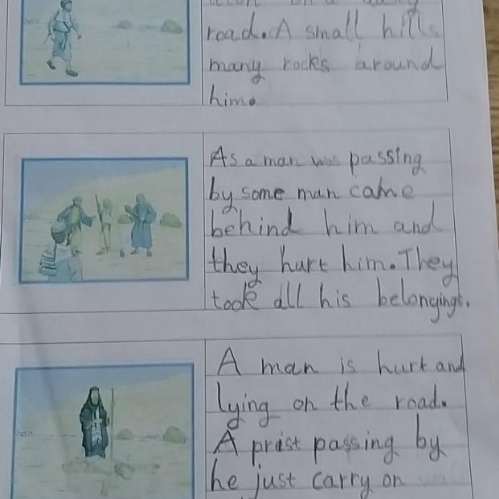 road. A small hills
many rocks around
him.
As a man was passing
by some man came
behind him and
they hurt him. They
took all his belongings.
A man is hurt and
lying on the road.
A prist passing by
he just carry on